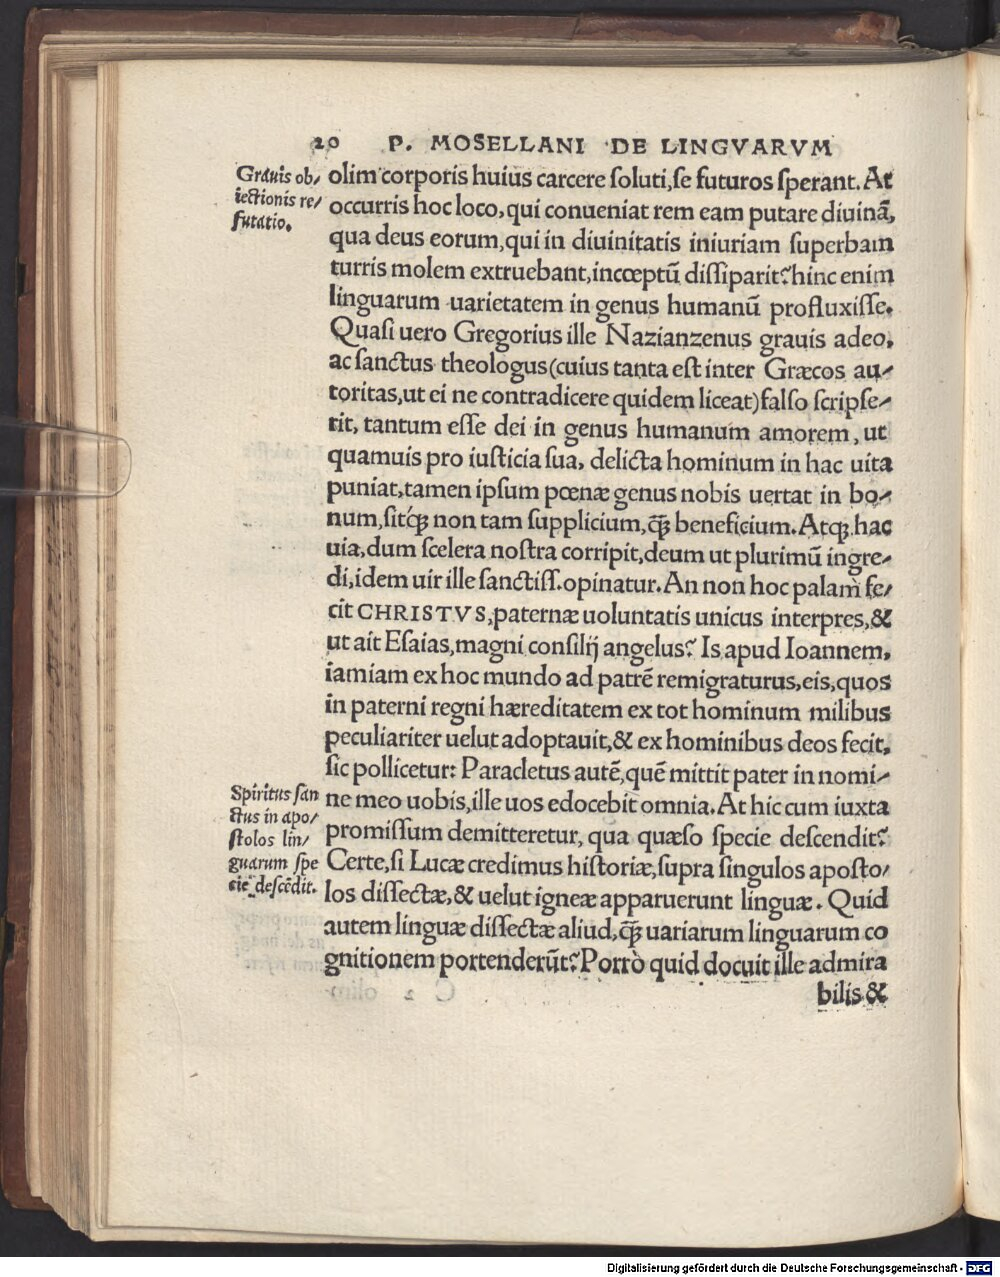 20 P. MOSELLANI DE LINGVARVM
Grauis ob-
iectionis re-
futatio.
olim corporis huius carcere soluti, se futuros sperant. At
occurris hoc loco, qui conueniat rem eam putare diuinā,
qua deus eorum, qui in diuinitatis iniuriam superbam
turris molem extruebant, incœptū dissiparit? hinc enim
linguarum uarietatem in genus humanū profluxisse.
Quasi uero Gregorius ille Nazianzenus grauis adeo,
ac sanctus theologus (cuius tanta est inter Græcos au-
toritas, ut ei ne contradicere quidem liceat) falso scripse-
rit, tantum esse dei in genus humanum amorem, ut
quamuis pro iusticia sua, delicta hominum in hac uita
puniat, tamen ipsum pœnæ genus nobis uertat in bo-
num, sitq́ꝫ non tam supplicium, q̄ꝫ beneficium. Atqꝫ hac
uia, dum scelera nostra corripit, deum ut plurimū ingre-
di, idem uir ille sanctiss. opinatur. An non hoc palam fe-
cit CHRISTVS, paternæ uoluntatis unicus interpres, &
ut ait Esaias, magni consilij angelus? Is apud Ioannem,
iamiam ex hoc mundo ad patrē remigraturus, eis, quos
in paterni regni hæreditatem ex tot hominum milibus
peculiariter uelut adoptauit, & ex hominibus deos fecit,
sic pollicetur: Paracletus autē, quē mittit pater in nomi-
ne meo uobis, ille uos edocebit omnia. At hic cum iuxta
promissum demitteretur, qua quæso specie descendit?
Certe, si Lucæ credimus historiæ, supra singulos aposto-
los dissectæ, & uelut igneæ apparuerunt linguæ. Quid
autem linguæ dissectæ aliud, q̄ꝫ uariarum linguarum co
gnitionem portenderūt? Porrò quid docuit ille admira
Spiritus san
ctus in apo-
stolos lin-
guarum spe
cie descēdit.
bilis &
Digitalisierung gefördert durch die Deutsche Forschungsgemeinschaft - DFG